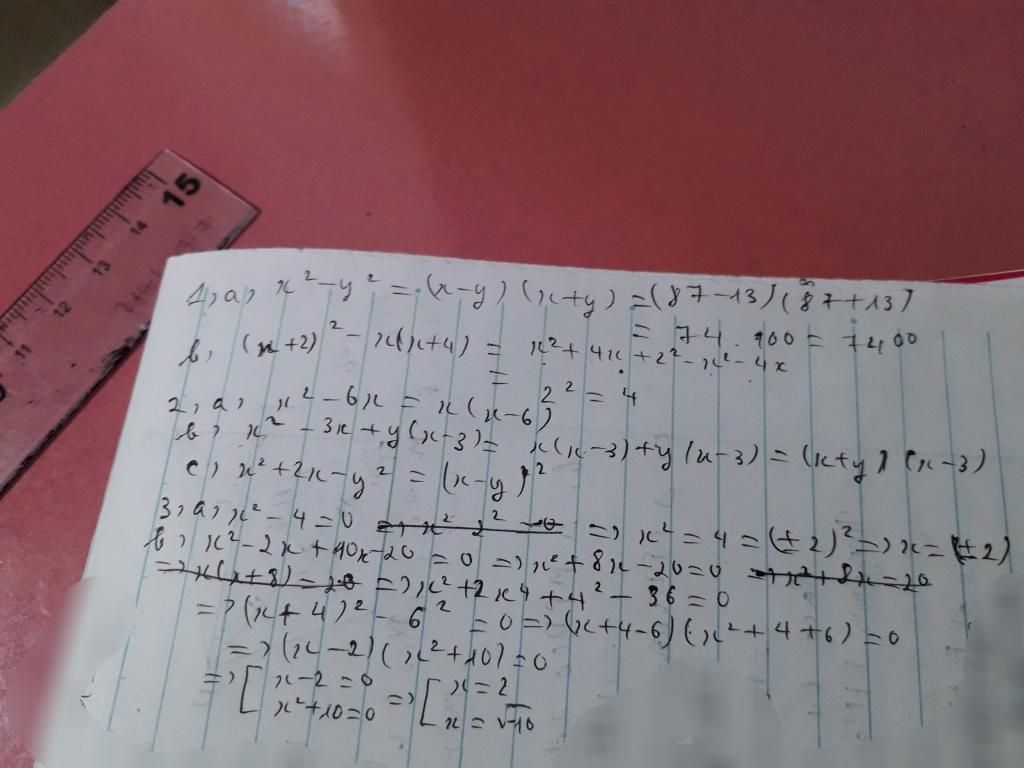 15
14
13
12
11
1, a, x² - y² = (x-y) (x+y) = (87-13) (87+13)
= 74 . 100 = 7400
b, (x+2)² - x(x+4) = x² + 4x + 2² - x² - 4x
= 2² = 4
2, a, x² - 6x = x(x-6)
b, x² - 3x + y(x-3) = x(x-3) + y(x-3) = (x+y) (x-3)
c, x² + 2x - y² = (x-y)²
3, a, x² - 4 = 0 => x² = 4 = (±2)² => x = (±2)
b, x² - 2x + 10x - 20 = 0 => x² + 8x - 20 = 0 => x² + 8x = 20
=> x(x+8) = 20 => x² + 2x4 + 4² - 36 = 0
=> (x+4)² - 6² = 0 => (x+4-6) (x²+4+6) = 0
=> (x-2) (x²+10) = 0
=> [ x-2=0 => [ x=2
x²+10=0 x=√-10